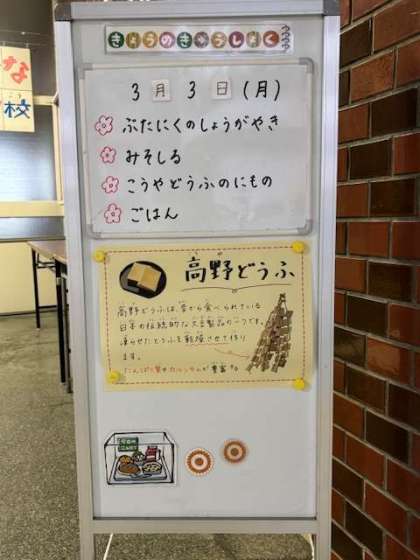 な
校
きょうのきゅうしょく
3月3日(月)
ぶたにくのしょうがやき
みそしる
こうやどうふのにもの
ごはん
高野どうふ
高野どうふは、昔から食べられている
日本の伝統的な大豆製品の一つです。
凍らせたとうふを乾燥させて作り
ます。
たんぱく質やカルシウムが豊富